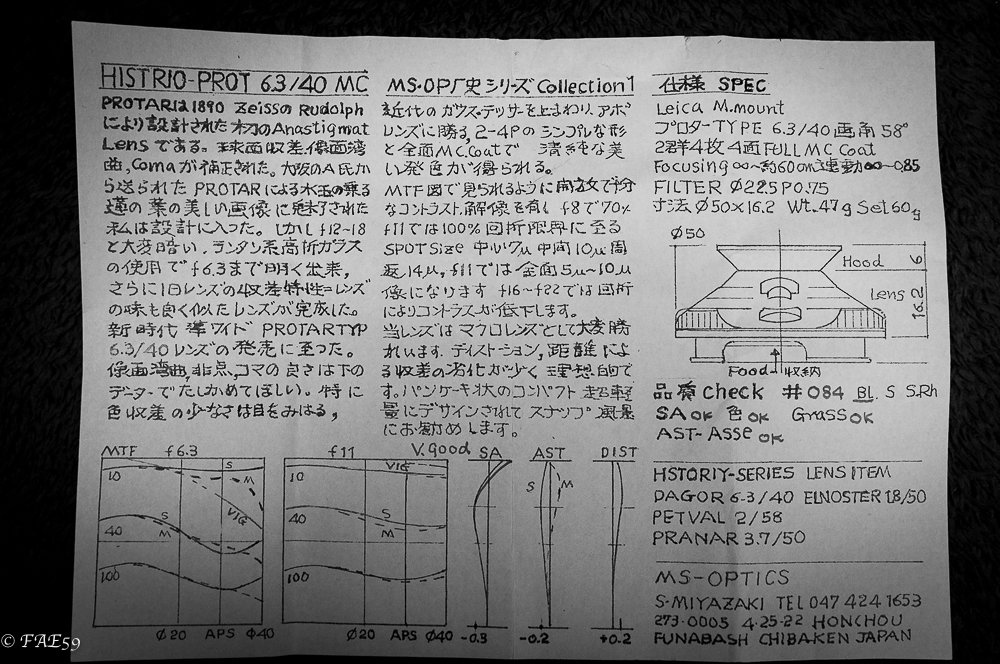 HISTRIO-PROT 6.3/40 MC
PROTARは1890 ZeissのRudolph
により設計された初のAnastigmat
Lensである。球面収差、像面湾
曲,Comaが補正された。大阪のA氏か
ら送られた PROTARによる水玉の乗る
蓮の葉の美しい画像に魅了された
私は設計に入った。しかしf12~18
と大変暗い,ランタン系高折ガラス
の使用でf6.3まで明るく出来,
さらに旧レンズの収差特性=レンズ
の味も良く似たレンズが完成した。
新時代 準ワイド PROTARTYP
6.3/40 レンズの発売に至った。
像画湾曲,非点,コマの良さは下の
データーでたしかめてほしい。特に
色収差の少なさは目をみはる,
MS-OPT史シリーズCollection1
近代のガウス,テッサーを上まわり、アポ
レンズに勝る,2-4Pのシンプルな形
と全面MC.Coatで 清純な美
い発色が得られる。
MTF図で見られるように開放で十分
なコントラスト,解像を有し f8で70%
f11では100%回折限界に至る
SPOTSize 中心7μ 中間10μ 周
辺14μ,f11では全面5μ~10μ
像になります f16~f22では回折
によりコントラスが低下します。
当レンズはマクロレンズとして大変勝
れいます. ディストーション,距離によ
る収差の劣化が少く理想的で
す。パンケーキ状のコンパクト 超軽
量にデザインされて スナップ 風景
にお勧めします。
仕様 SPEC
Leica M.mount
プロターTYPE 6.3/40 画角58°
2群4枚4面FULL MC Coat
Focusing ∞~約60cm連動∞~0.85
FILTER Ø22.5 P0.75
寸法Ø50×16.2 Wt.47g Set60g
Ø50
Hood
6
Lens
16.2
Food 収納
品質check #084 BL. S S.Rh
SA OK 色OK Grass OK
AST-Asse OK
MTF f6.3
10
S
M
VIG
40
S
M
100
Ø20 APS Ø40
f11 V.good
10
VIG
40
S
M
100
Ø20 APS Ø40
SA
-0.3
AST
S
M
-0.2
DIST
+0.2
HSTORIY-SERIES LENS ITEM
DAGOR 6-3/40 ELNOSTER 1.8/50
PETVAL 2/58
PRANAR 3.7/50
MS-OPTICS
S-MIYAZAKI TEL 047 424 1653
273-0005 4-25-22 HONCHOU
FUNABASH CHIBAKEN JAPAN
© FAE59